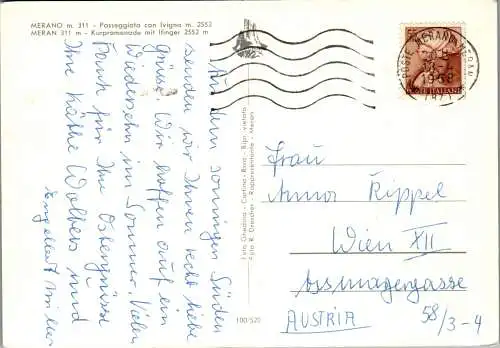 MERANO m. 311 - Passeggiata con Ivigna m. 2552
MERAN 311 m - Kurpromenade mit Ifinger 2552 m
Aus dem sonnigen Süden
senden wir Ihnen recht liebe
Grüsse. Wir hoffen auf ein
Wiedersehn im Sommer. Vielen
Dank für Ihre Ostergrüsse
Ihre Käthe Wolbers und
Engelbert
Foto Ghedina - Cortina - Bond - Ripr. vietata
Foto R. Drescher - Rappresentante - Meran
100/520
POSTE ITALIANE
Frau
Anna Rippel
Wien XII
Assmayergasse
58/3-4
AUSTRIA